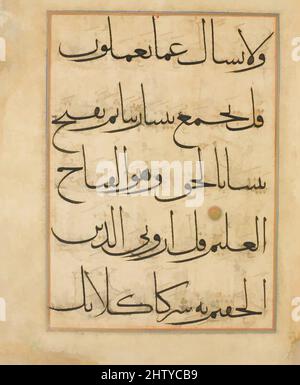 ولا نسال عما تعملون
قل يجمع بيننا ربنا ثم يفتح
بيننا بالحق وهو الفتاح
العليم قل اروني الذين
الحقتم به شركا كلا بل
alamy
Image ID: 2HTYCB9
www.alamy.com